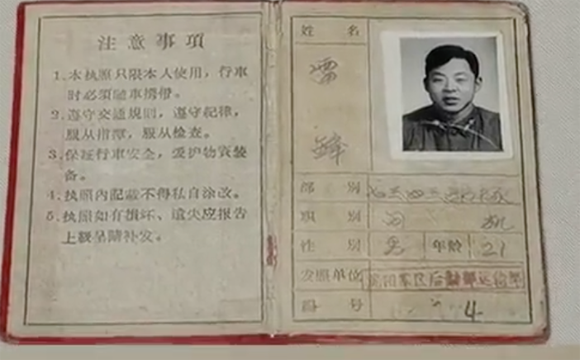 注意事項
1.本执照只限本人使用，行車
时必须随車携帶。
2.遵守交通規则，遵守紀律，
服从指揮，服从檢查。
3.保証行車安全，爱护物資裝
备。
4.执照內記載不得私自涂改。
5.执照如有損坏、遺失应报告
上級呈請补发。
姓 名
雷
鋒
部 别
职 别 司 机
性 别 男 年龄 21
发照单位 沈阳軍区后勤部运输
号 4